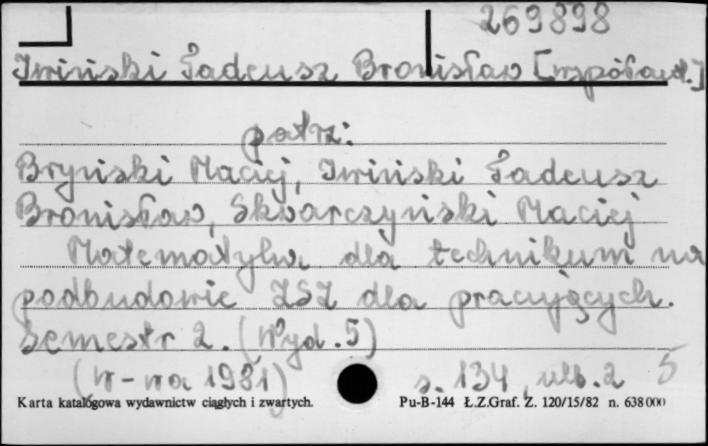 269898
Iwiński Tadeusz Bronisław [współaut.]
patrz:
Bryński Maciej, Iwiński Tadeusz
Bronisław, Skwarczyński Maciej
Matematyka dla technikum na
podbudowie ZSZ dla pracujących.
Semestr 2. (Wyd. 5)
(W-wa 1981) s. 134, nlb. 2 5
Karta katalogowa wydawnictw ciągłych i zwartych. Pu-B-144 Ł.Z.Graf. Z. 120/15/82 n. 638000